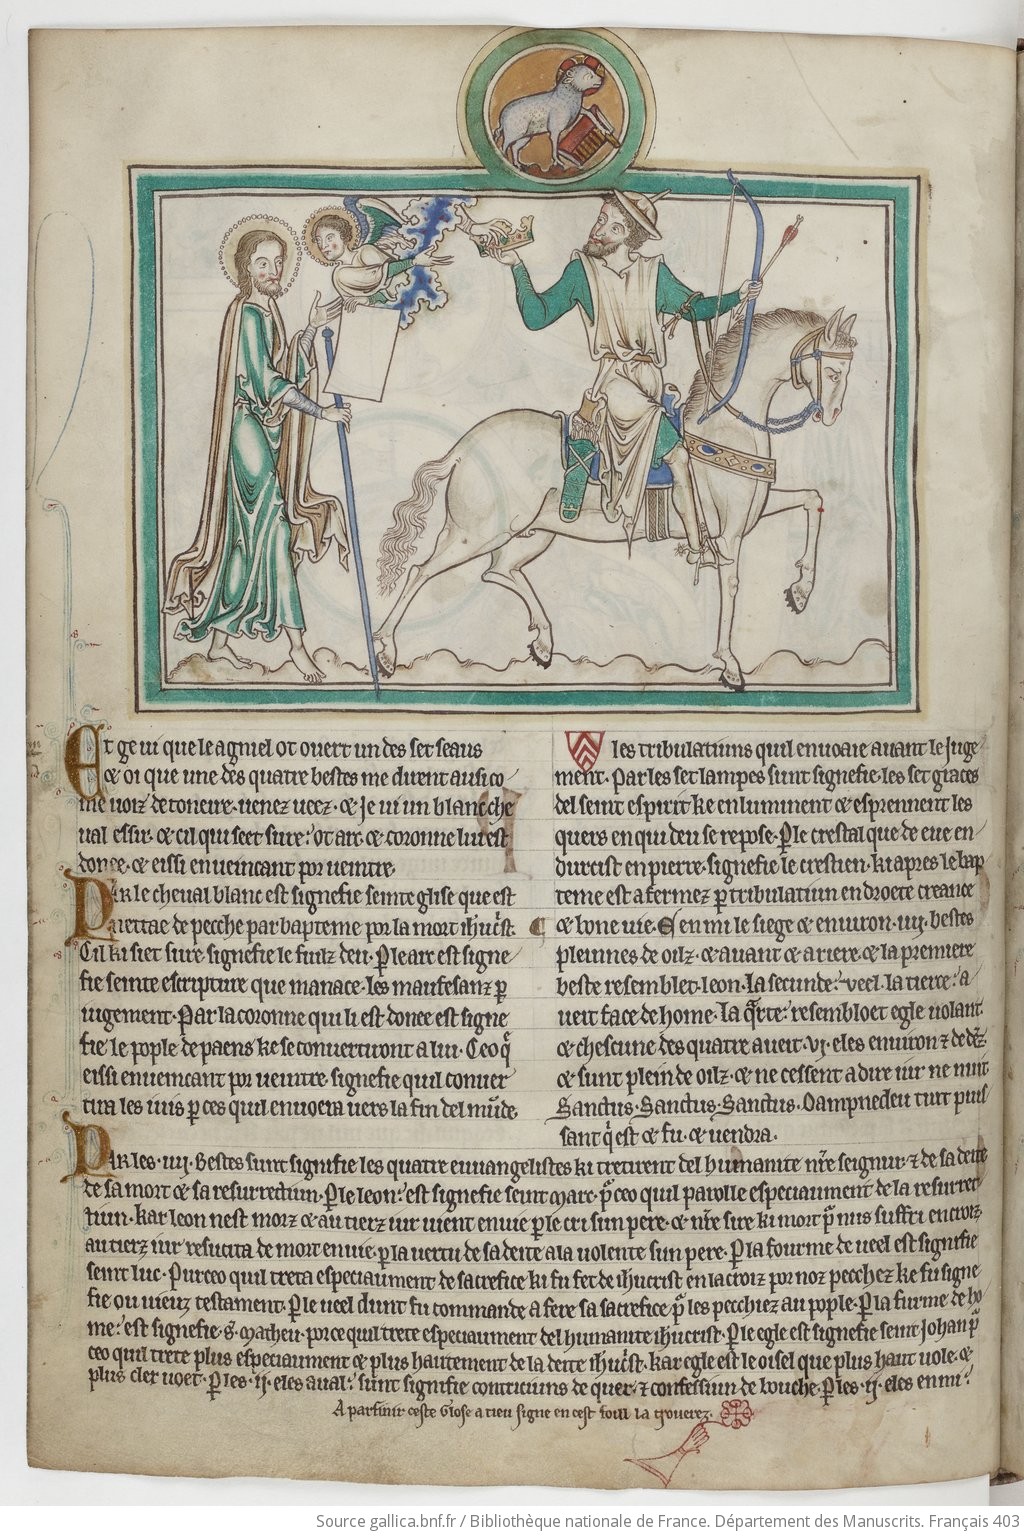 Et ge ui que le agniel ot ouert un des set seaus
⁊ oi que une des quatre bestes me dient ausi co
me uoiz de toneire. uenez ueez. ⁊ Je ui un blanc che
ual essir. ⁊ cil qui seet sure. ot arc ⁊ coronne lui est
donee. ⁊ eissi en ueincant por ueintre.
Par le cheual blanc est signefie seinte glise que est
nettae de pecche par bapteme por la mort ihu cst.
Cil ki siet sure signefie le fuilz deu. Ple arc est signe
fie seinte escripture que manace les maufesanz p
iugement. Par la coronne qui li est donee est signe
fie le pople de paens ke se conuertiront a lui. Ceo q
eissi en ueincant por ueintre signefie quil conuer
tira les iuis p ces quil enuoera uers la fin del mude.
les tribulatiuns quil enuoaie auant le juge
ment. Par les set lampes sunt signefie les set graces
del seint espirit ke enluminent ⁊ esprennent les
quers en qui deu se repose. Ple crestal que de eue en
durcist en pierre. signefie le crestien. ki apres le bap
teme est afermez p tribulatiun en droete creance
⁊ bone uie. E en mi le siege ⁊ enuiron .iiij. bestes
pleinnes de oilz. ⁊ auant ⁊ ariere. ⁊ la premiere
beste resemblet leon. la secunde: ueel. la tierce: a
ueit face de home. la qrte: resembloet egle uolant.
⁊ chescune des quatre aueit .vj. eles enuiron ⁊ dedez
⁊ sunt plein de oilz. ⁊ ne cessent a dire iur ne nuit
Sanctus. Sanctus. Sanctus. Dampnedeu tut puis
sant q est ⁊ fu. ⁊ uendra.
Par les .iiij. bestes sunt signifie les quatre euuangelistes ki tretirent del humanite nre seignur. ⁊ de sa deite
de sa mort ⁊ sa resurrectiun. Ple leon: est signefie seint marc. p ceo quil parolle especiaument de la resurrec
tiun. kar leon nest morz ⁊ au tierz iur uient en uie p le cri sun pere. ⁊ nre sire ki mort p nus suffri en croiz
au tierz iur resucita de mort en uie. p la uertu de sa deite a la uolente sun pere. P la fourme de ueel est signifie
seint luc. Pur ceo quil treta especiaument de sacrefice ki fu fet de ihucrist en la croiz por noz pecchez ke fu signe
fie ou uieuz testament. Ple ueel dunt fu commande a fere sa sacrefice p les pecchiez au pople. P la furme de ho
me: est signefie .S. matheu. por ce quil trete especiaument del humanite ihucrist. Ple egle est signifie seint Johan p
ceo quil trete plus especiaument ⁊ plus hautement de la deite ihucst. kar egle est le oisel que plus haut uole. ⁊
plus cler uoet. P les .ij. eles aual: sunt signifie contriciuns de quer. ⁊ confessiun de bouche. P les .ij. eles en mi:
A parfinir ceste Glose a tieu signe en cest foill la trouerez.
Source gallica.bnf.fr / Bibliothèque nationale de France. Département des Manuscrits. Français 403